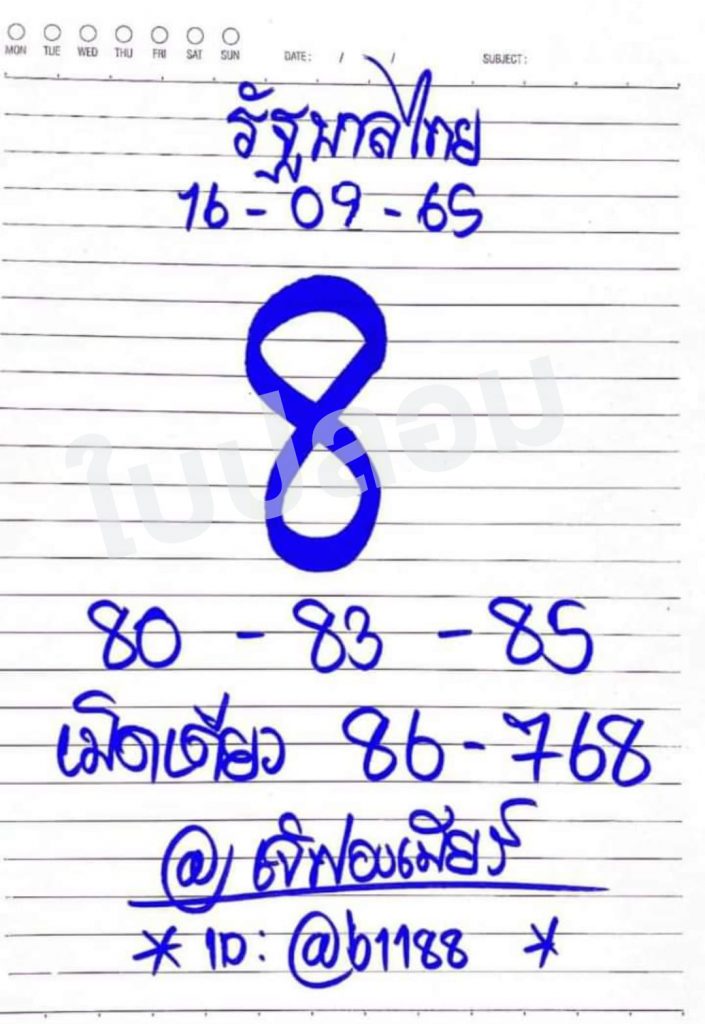 MON TUE WED THU FRI SAT SUN DATE: / / SUBJECT:
รัฐบาลไทย
16-09-65
8
ใบปลอม
80 - 83 - 85
เม็ดเดียว 86-768
@เจ๊ฟองเบียร์
* ID: @b1188 *